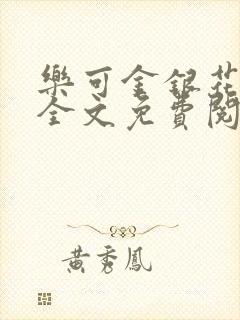 樂可金銀花
全文免費閱
黃秀鳳